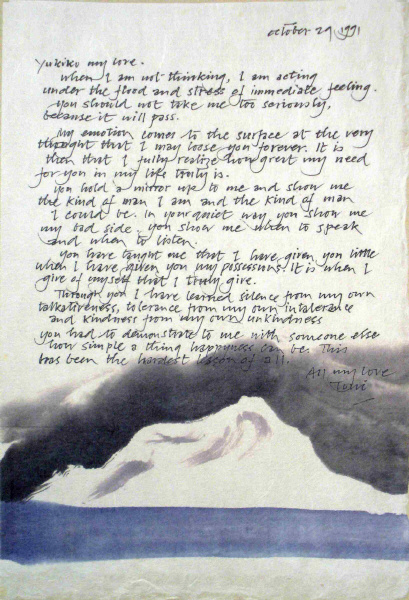 october 29 1991
Yukiko my love.
when I am not thinking, I am acting
under the flood and stress of immediate feeling.
you should not take me too seriously,
because it will pass.
My emotion comes to the surface at the very
thought that I may loose you forever. It is
then that I fully realize how great my need
for you in my life truly is.
you hold a mirror up to me and show me
the kind of man I am and the kind of man
I could be. In your quiet way you show me
my bad side, you show me when to speak
and when to listen.
you have taught me that I have given you little
when I have given you my possessions. It is when I
give of myself that I truly give.
Through you I have learned silence from my own
talkativeness, tolerance from my own intolerance
and kindness from my own unkindness
you had to demonstrate to me with someone else
how simple a thing happyness can be. This
has been the hardest lesson of all.
All my love